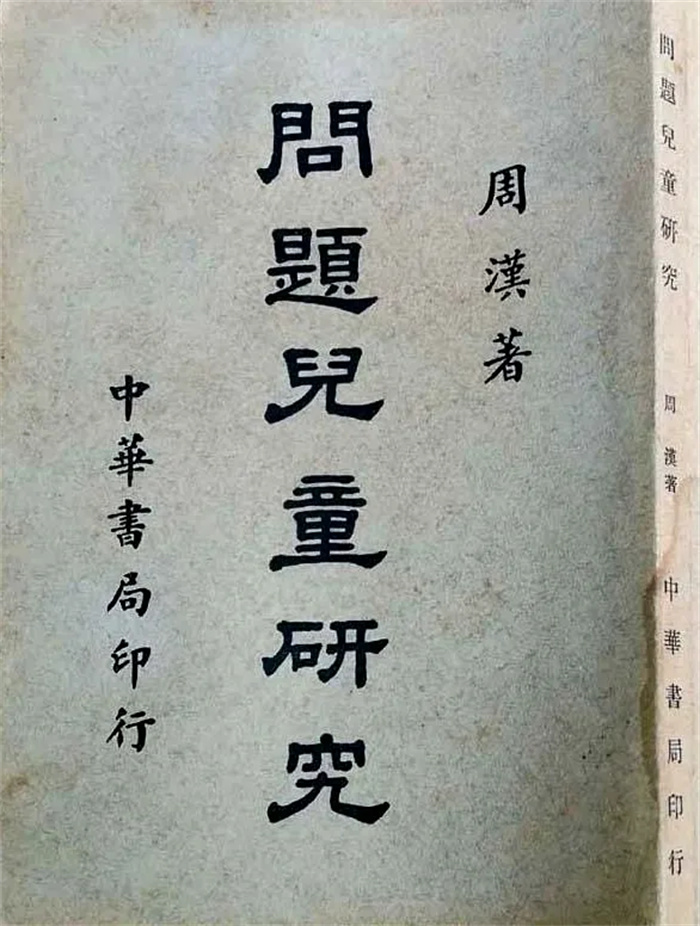 周漢著
問題兒童研究
中華書局印行
問題兒童研究
周漢著
中華書局印行